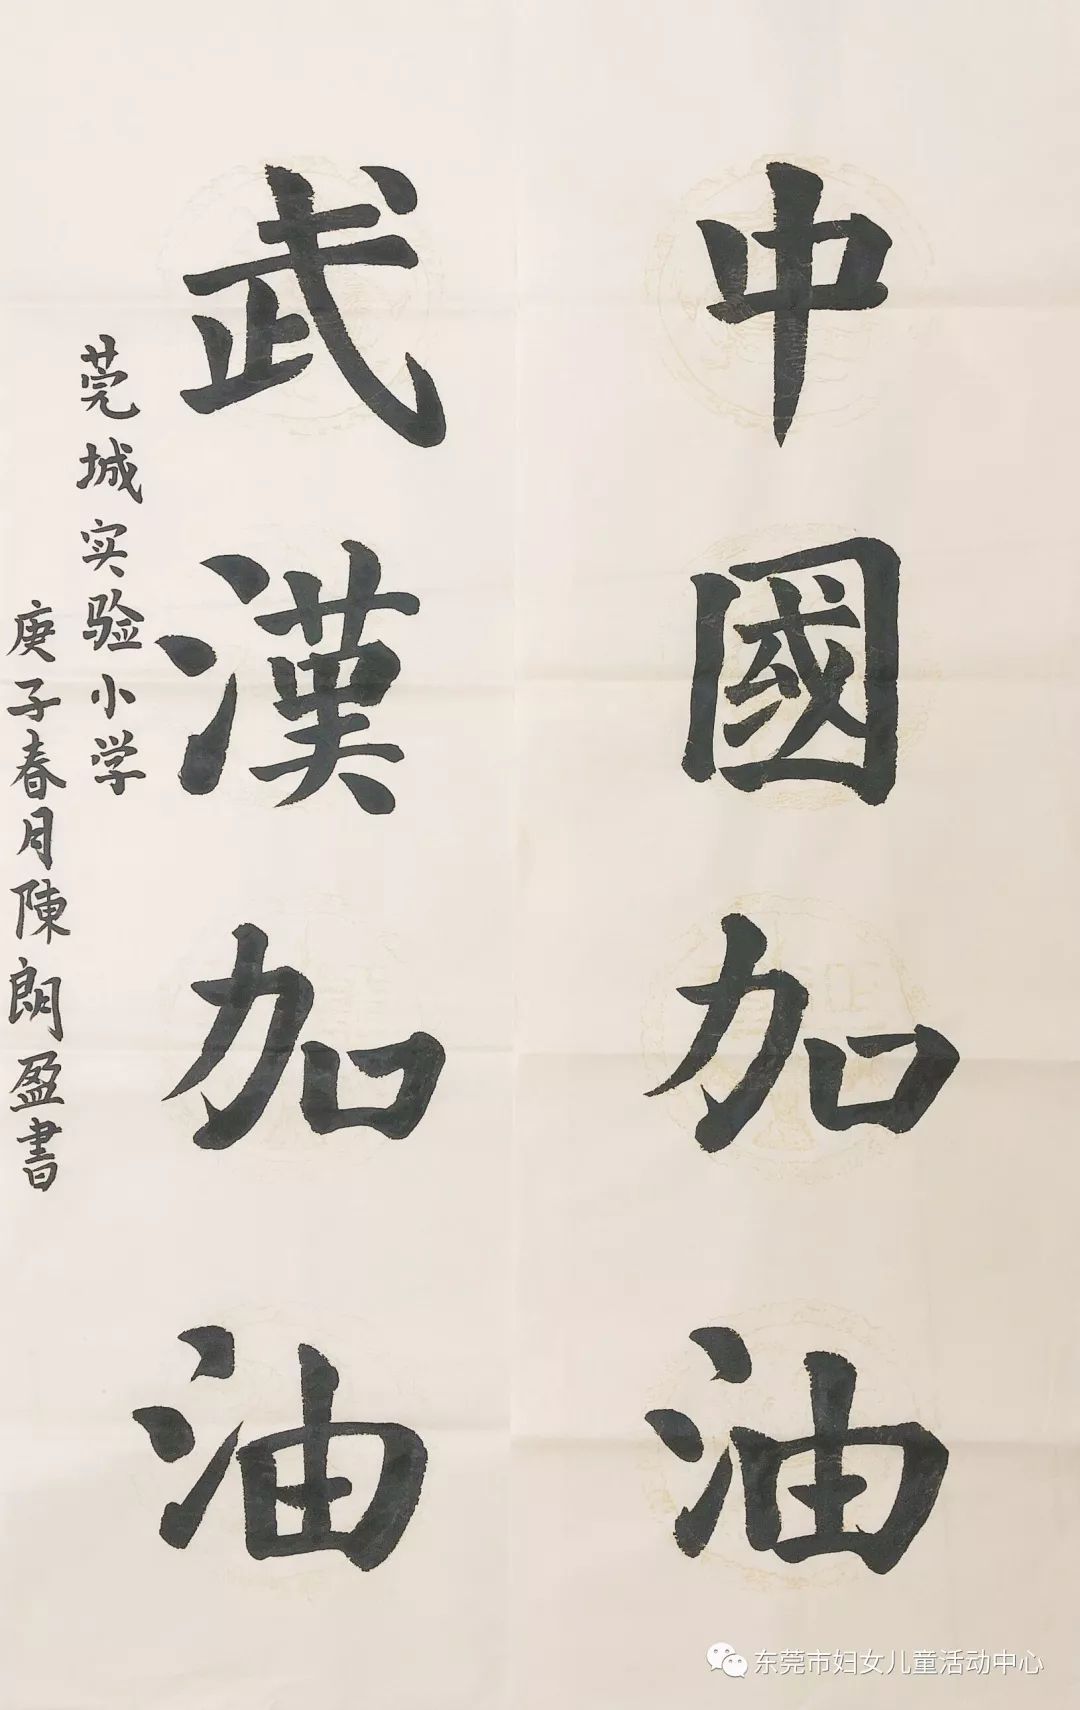 中國加油
武漢加油
莞城实验小学
庚子春月陳朗盈書
东莞市妇女儿童活动中心